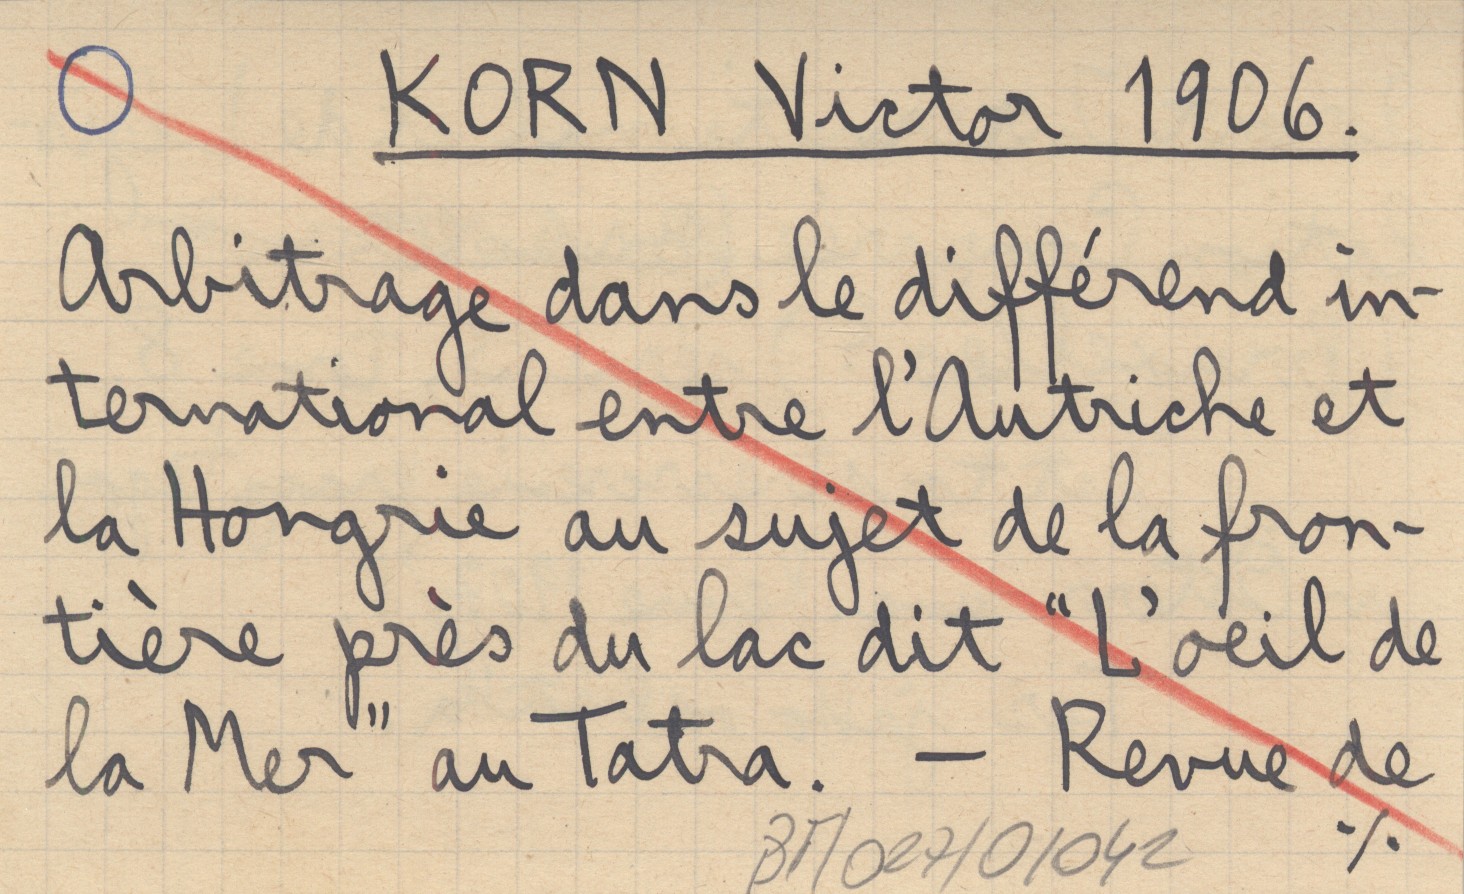 KORN Victor 1906.
Arbitrage dans le différend in-
ternational entre l'Autriche et
la Hongrie au sujet de la fron-
tière près du lac dit "L'oeil de
la Mer" au Tatra. — Revue de
·/.
/027/0/042